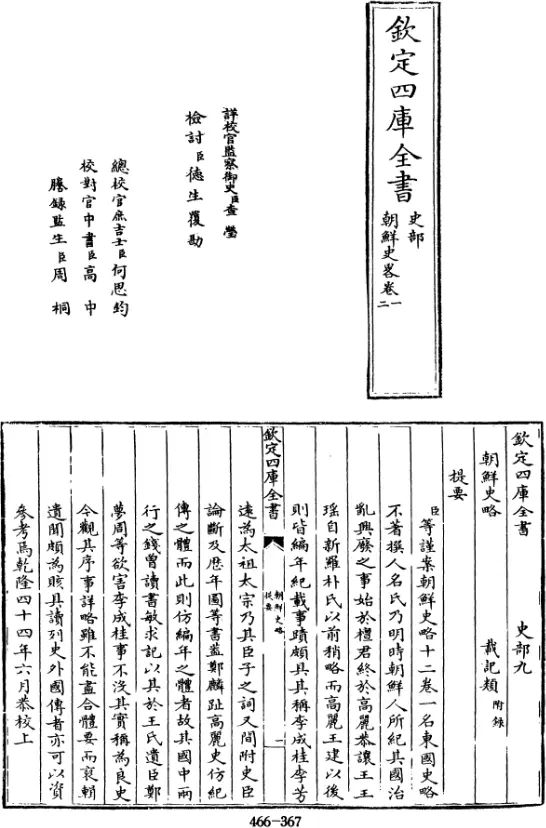 欽定四庫全書
史部
朝鮮史畧卷一
二
詳校官監察御史臣查瑩
檢討臣德生覆勘
總校官庶吉士臣何思鈞
校對官中書臣高中
謄錄監生臣周桐
欽定四庫全書
史部九
朝鮮史略
載記類附錄
提要
臣等謹案朝鮮史略十二卷一名東國史略
不著撰人名氏乃明時朝鮮人所紀其國治
亂興廢之事始於檀君終於高麗恭讓王王
瑶自新羅朴氏以前稍略而高麗王建以後
則皆編年紀載事蹟頗具其稱李成桂李芳
欽定四庫全書
朝鮮史略
提要
一
遠為太祖太宗乃其臣子之詞又間附史臣
論斷及歴年圖等書蓋鄭麟趾高麗史仿紀
傳之體而此則仿編年之體者故其國中兩
行之錢曾讀書敏求記以其於王氏遺臣鄭
夢周等欲害李成桂事不没其實稱為良史
今觀其序事詳略雖不能盡合體要而裒輯
遺聞頗為賅具讀列史外國傳者亦可以資
參考焉乾隆四十四年六月恭校上
466-367